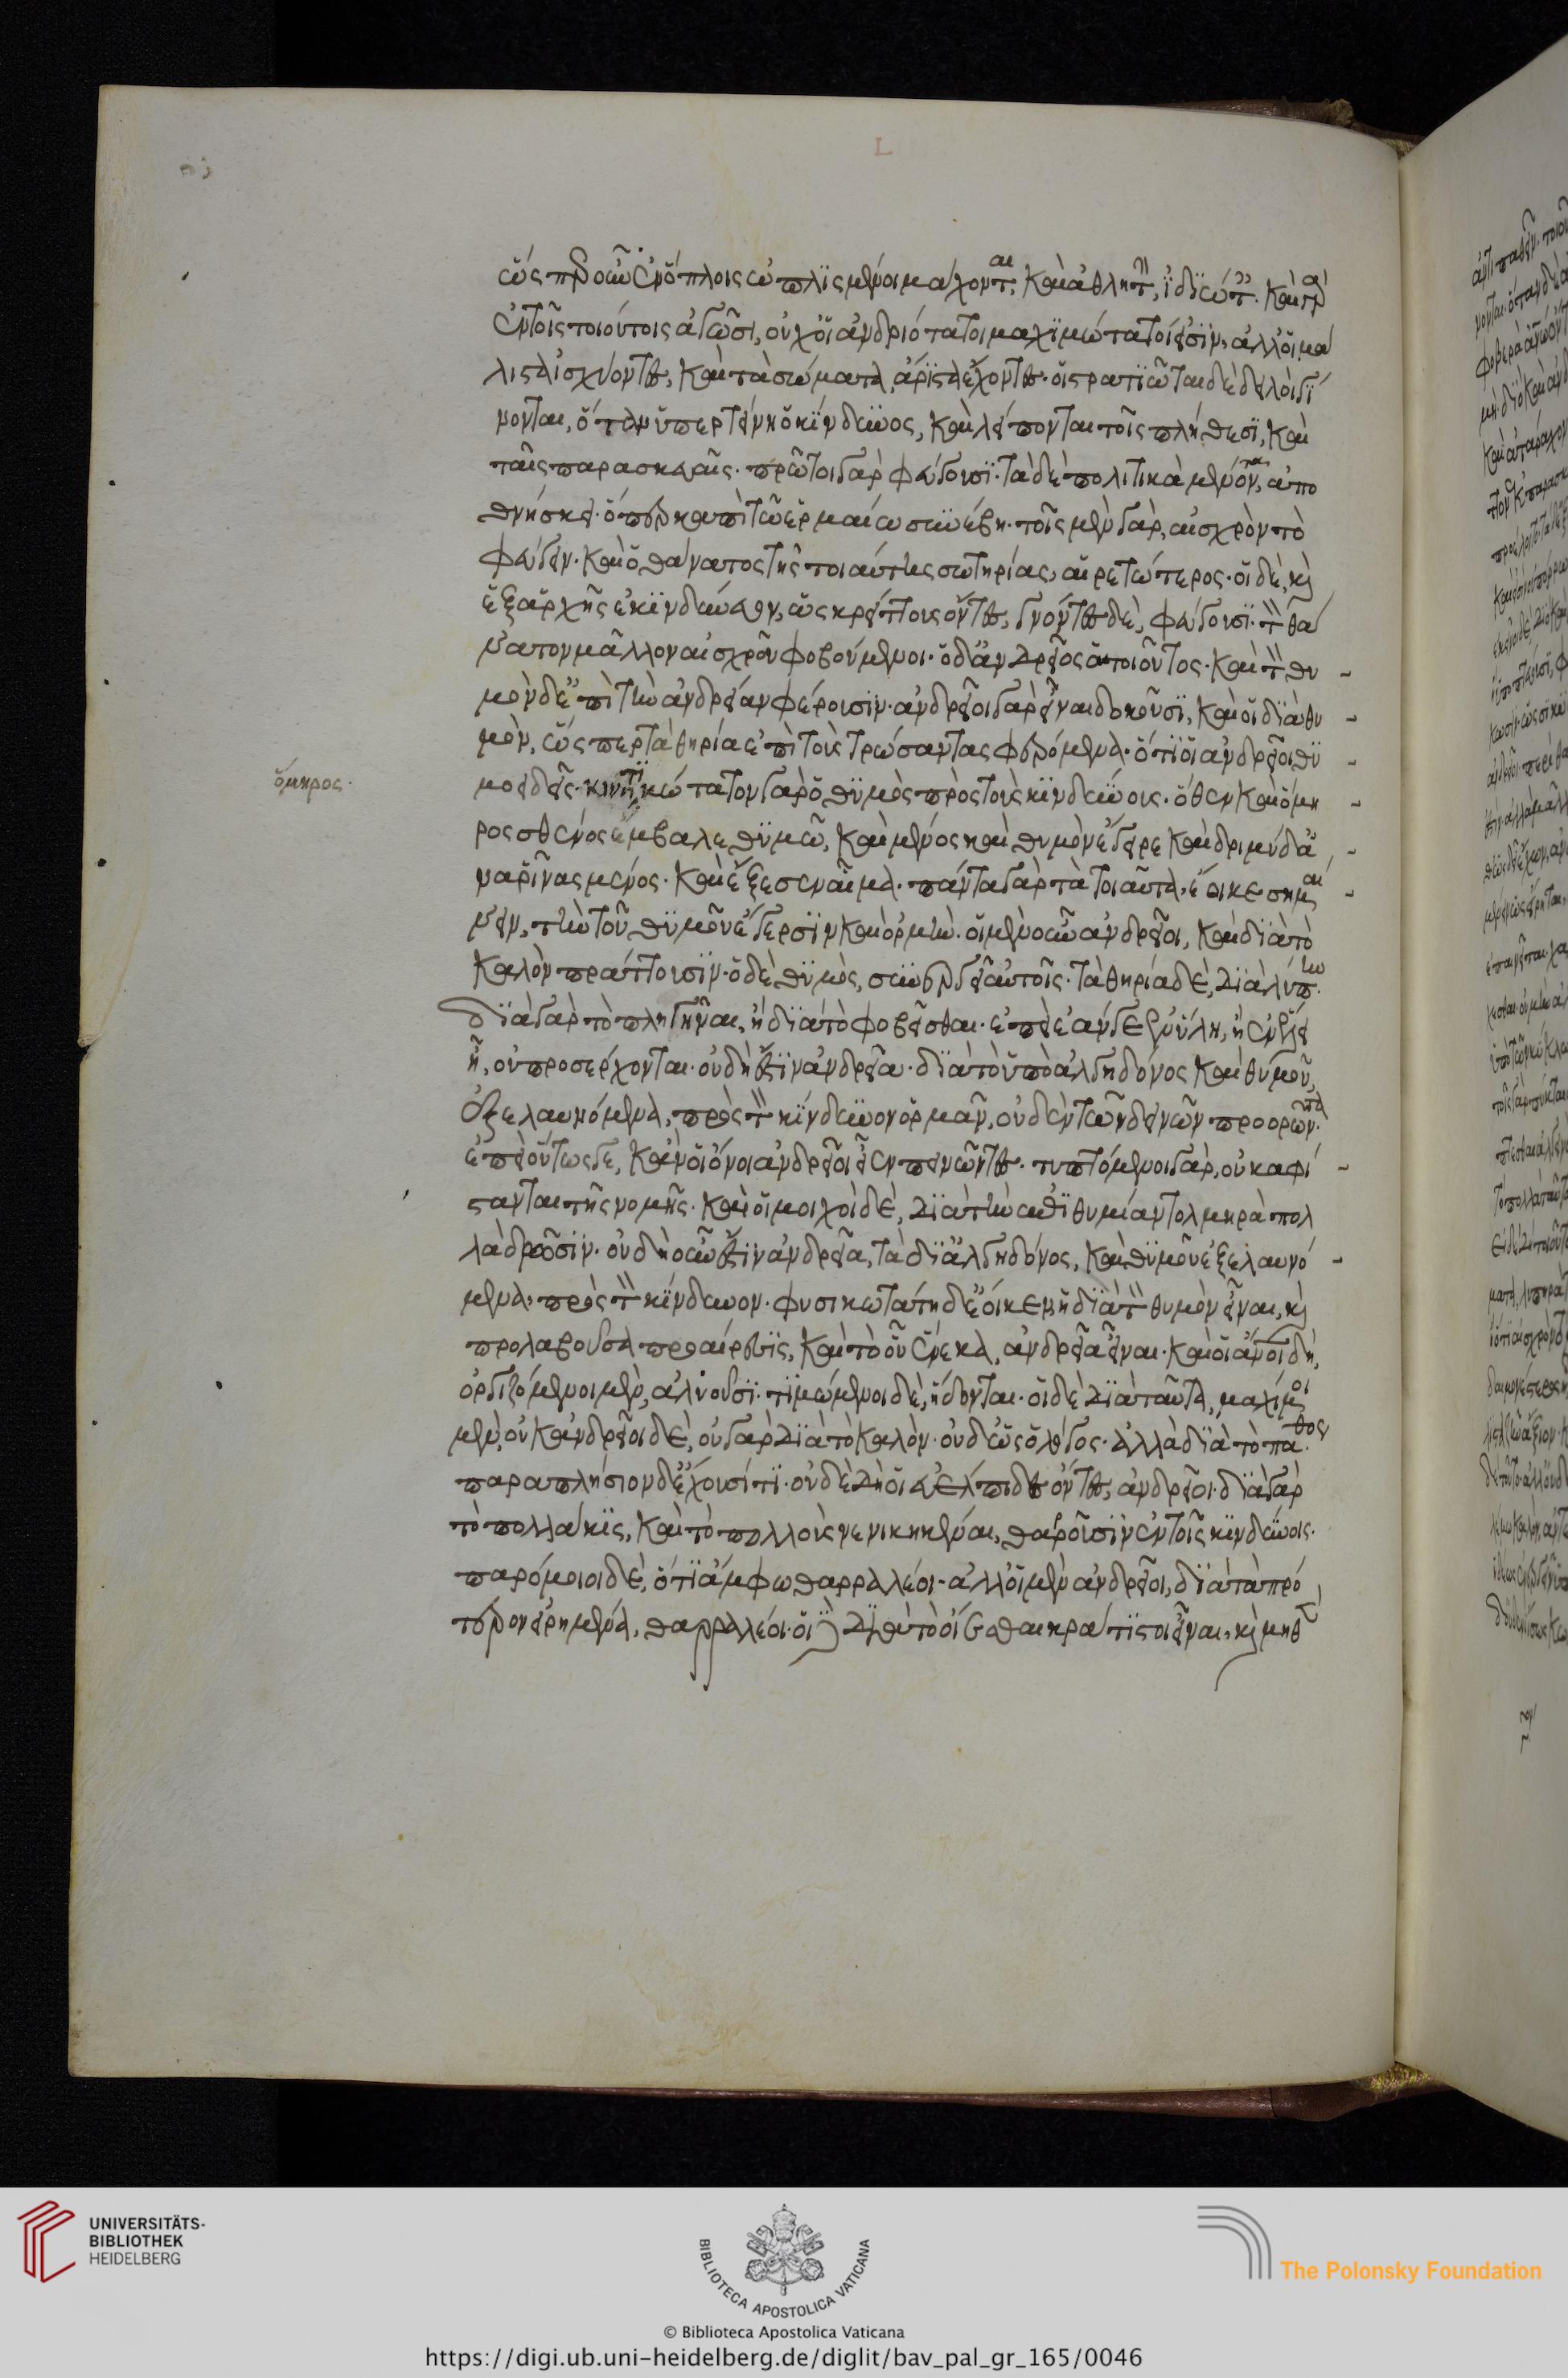 ὥς περ οὖν ἐνόπλοις ὡπλισμένοι μάχονται, καὶ ἀθληταὶ ἰδιώταις. καὶ γὰρ
ἐν τοῖς τοιούτοις ἀγῶσι, οὐχ οἱ ἀνδριότατοι μαχιμώτατοί εἰσιν, ἀλλ οἱ μά
λιστα ἰσχύοντες, καὶ τὰ σώματα ἄριστα ἔχοντες. οἱ στρατιῶται δὲ δειλοὶ γί
νονται, ὅταν ὑπερτείνη ὁ κίνδυνος, καὶ λείπονται τοῖς πλήθεσι, καὶ
ταῖς παρασκευαῖς. πρῶτοι γὰρ φεύγουσι. τὰ δὲ πολιτικὰ μένοντα, ἀπο
θνήσκει. ὅπερ κἀπὶ τῶ ἑρμαίω συνέβη. τοῖς μὲν γὰρ, αἰσχρὸν τὸ
φεύγειν. καὶ ὁ θάνατος τῆς τοιαύτης σωτηρίας, αἱρετώτερος. οἱ δὲ, καὶ
ἐξ ἀρχῆς ἐκινδύνευον, ὡς κρείττους ὄντες, γνόντες δὲ, φεύγουσι. τὸν θά
νατον μᾶλλον αἰσχροῦ φοβούμενοι. ὁ δ ἀνδρεῖος οὐ τοιοῦτος. καὶ τὸν θυ
μὸν δ ἐπὶ τὴν ἀνδρείαν φέρουσιν. ἀνδρεῖοι γὰρ εἶναι δοκοῦσι, καὶ οἱ διὰ θυ
μὸν, ὥς περ τὰ θηρία ἐπὶ τοὺς τρώσαντας φερόμενα. ὅτι οἱ ἀνδρεῖοι θυ
μοειδεῖς. κινητικώτατον γὰρ ὁ θυμὸς πρὸς τοὺς κινδύνους. ὅθεν καὶ ὅμη
ὅμηρος.
ρος σθένος ἔμβαλε θυμῶ, καὶ μένος καὶ θυμὸν ἔγειρε καὶ δριμὺ δ ἀ
να ῥῖνας μένος. καὶ ἔζεσεν αἷμα. πάντα γὰρ τὰ τοιαῦτα, ἔοικε σημαί
νειν, τὴν τοῦ θυμοῦ ἔγερσιν καὶ ὁρμήν. οἱ μὲν οὖν ἀνδρεῖοι, καὶ διὰ τὸ
καλὸν πράττουσιν. ὁ δὲ θυμὸς, συνεργεῖ αὐτοῖς. τὰ θηρία δὲ, διὰ λύπην.
διὰ γὰρ τὸ πληγῆναι, ἢ διὰ τὸ φοβεῖσθαι. ἐπεὶ ἐάν γε ἐν ὕλη, ἢ ἐν ἕλει
ἦ, οὐ προσέρχονται. οὐ δή ἐστιν ἀνδρεῖα. διὰ τὸ ὑπὸ ἀλγηδόνος καὶ θυμοῦ
ἐξελαυνόμενα, πρὸς τὸν κίνδυνον ὁρμᾶν, οὐδὲν τῶν δεινῶν προορῶντα.
ἐπεὶ οὕτως γε, κἂν οἱ ὄνοι ἀνδρεῖοι εἶεν πεινῶντες. τυπτόμενοι γὰρ, οὐκ ἀφί
στανται τῆς νομῆς. καὶ οἱ μοιχοὶ δὲ, διὰ τὴν ἐπιθυμίαν τολμηρὰ πολ
λὰ δρῶσιν. οὐ δὴ οὖν ἐστιν ἀνδρεῖα, τὰ δι ἀλγηδόνος, καὶ θυμοῦ ἐξελαυνό
μενα, πρὸς τὸν κίνδυνον. φυσικωτάτη δ ἔοικεν ἡ διὰ τὸν θυμὸν εἶναι, καὶ
προλαβοῦσα προαίρεσις, καὶ τὸ οὗ ἕνεκα, ἀνδρεία εἶναι. καὶ οἱ ἄνοι δὴ,
ὀργιζόμενοι μὲν, ἀλγοῦσι. τιμώμενοι δὲ, ἥδονται. οἱ δὲ διὰ ταῦτα, μαχίμοι
μὲν, οὐκ ἀνδρεῖοι δὲ, οὐ γὰρ διὰ τὸ καλὸν. οὐδ ὡς ὁ λόγος. ἀλλὰ διὰ τὸ πάθος.
παραπλήσιον δ ἔχουσί τι. οὐδὲ δὴ οἱ εὐέλπιδες ὄντες, ἀνδρεῖοι. διὰ γὰρ
τὸ πολλάκις, καὶ τὸ πολλοὺς νενικηκέναι, θαρροῦσιν ἐν τοῖς κινδύνοις.
παρόμοιοι δὲ, ὅτι ἄμφω θαρραλέοι. ἀλλ οἱ μὲν ἀνδρεῖοι, διὰ τὰ πρό
τερον εἰρημένα, θαρραλέοι. οἱ δὲ διὰ τὸ οἴεσθαι κράτιστοι εἶναι, καὶ μηθὲν
UNIVERSITÄTS-
BIBLIOTHEK
HEIDELBERG
BIBLIOTECA APOSTOLICA VATICANA
The Polonsky Foundation
© Biblioteca Apostolica Vaticana
https://digi.ub.uni-heidelberg.de/diglit/bav_pal_gr_165/0046